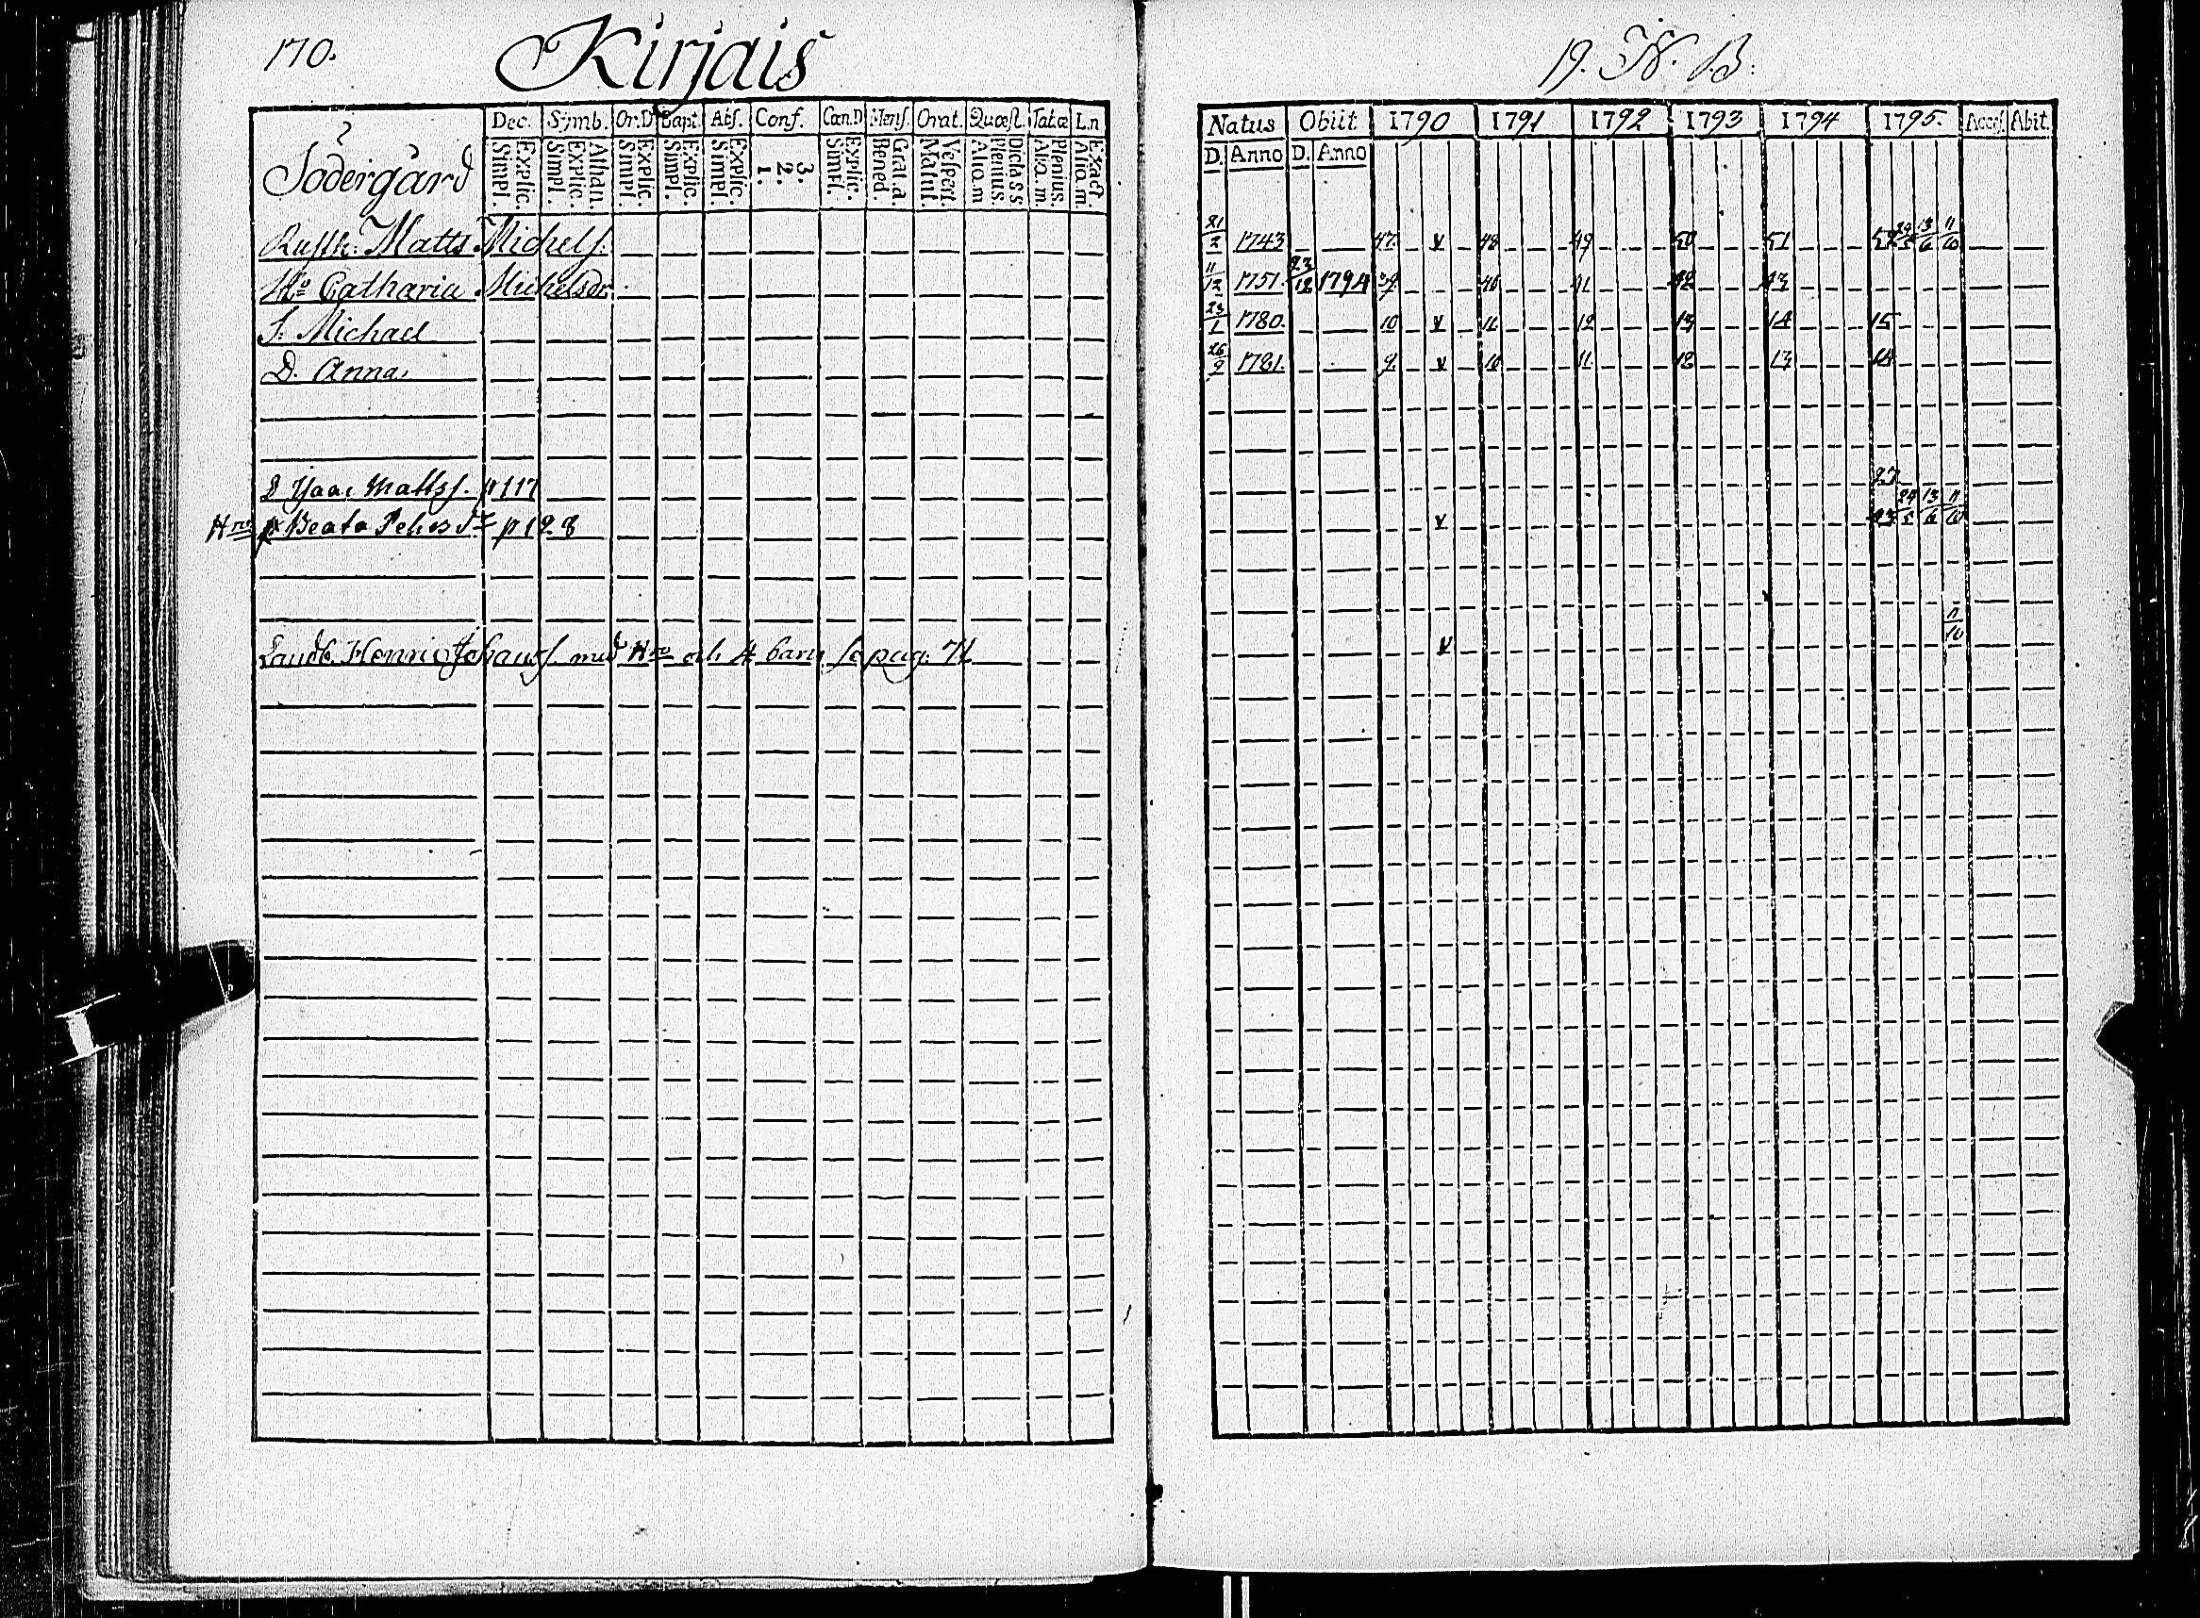 170. Kirjais
19. N. B:
Dec. Symb. Or.D Bapt. Abs. Conf. Cœn.D Mens. Orat. Quæst. Tab.œ L.n
2
Södergård
Simpl. Explic. Simpl. Explic. Athan. Simpl. Explic. Simpl. Explic. Simpl. Explic. 1. 2. 3. Simpl. Explic. Bened. Grat.a. Matut. Vespert. Aliq.m Plenius. Dicta S S Aliq.m. Plenius. Aliq.m. Exact.
Rusth: Matts Michelss:
H:o Catharia Michelsdr.
S. Michael
D. Anna
Matts. p 117
Beata p 128
Landb. Henric Johanss. med H:ro och 4 barn se pag: 71
Natus Obiit 1790 1791 1792 1793 1794 1795. Access. Abit.
D. Anno D. Anno
21/2 1743 47. x 48 49 50 51 52 24/5 13/6 11/10
11/12 1751. 23/12 1794 39 40 41 42 43
23/1 1780. 10 x 11. 12 13 14 15
26/9 1781. 9. x 10 11. 12 13 14
27
x 23 24/5 13/6 11/10
x 11/10